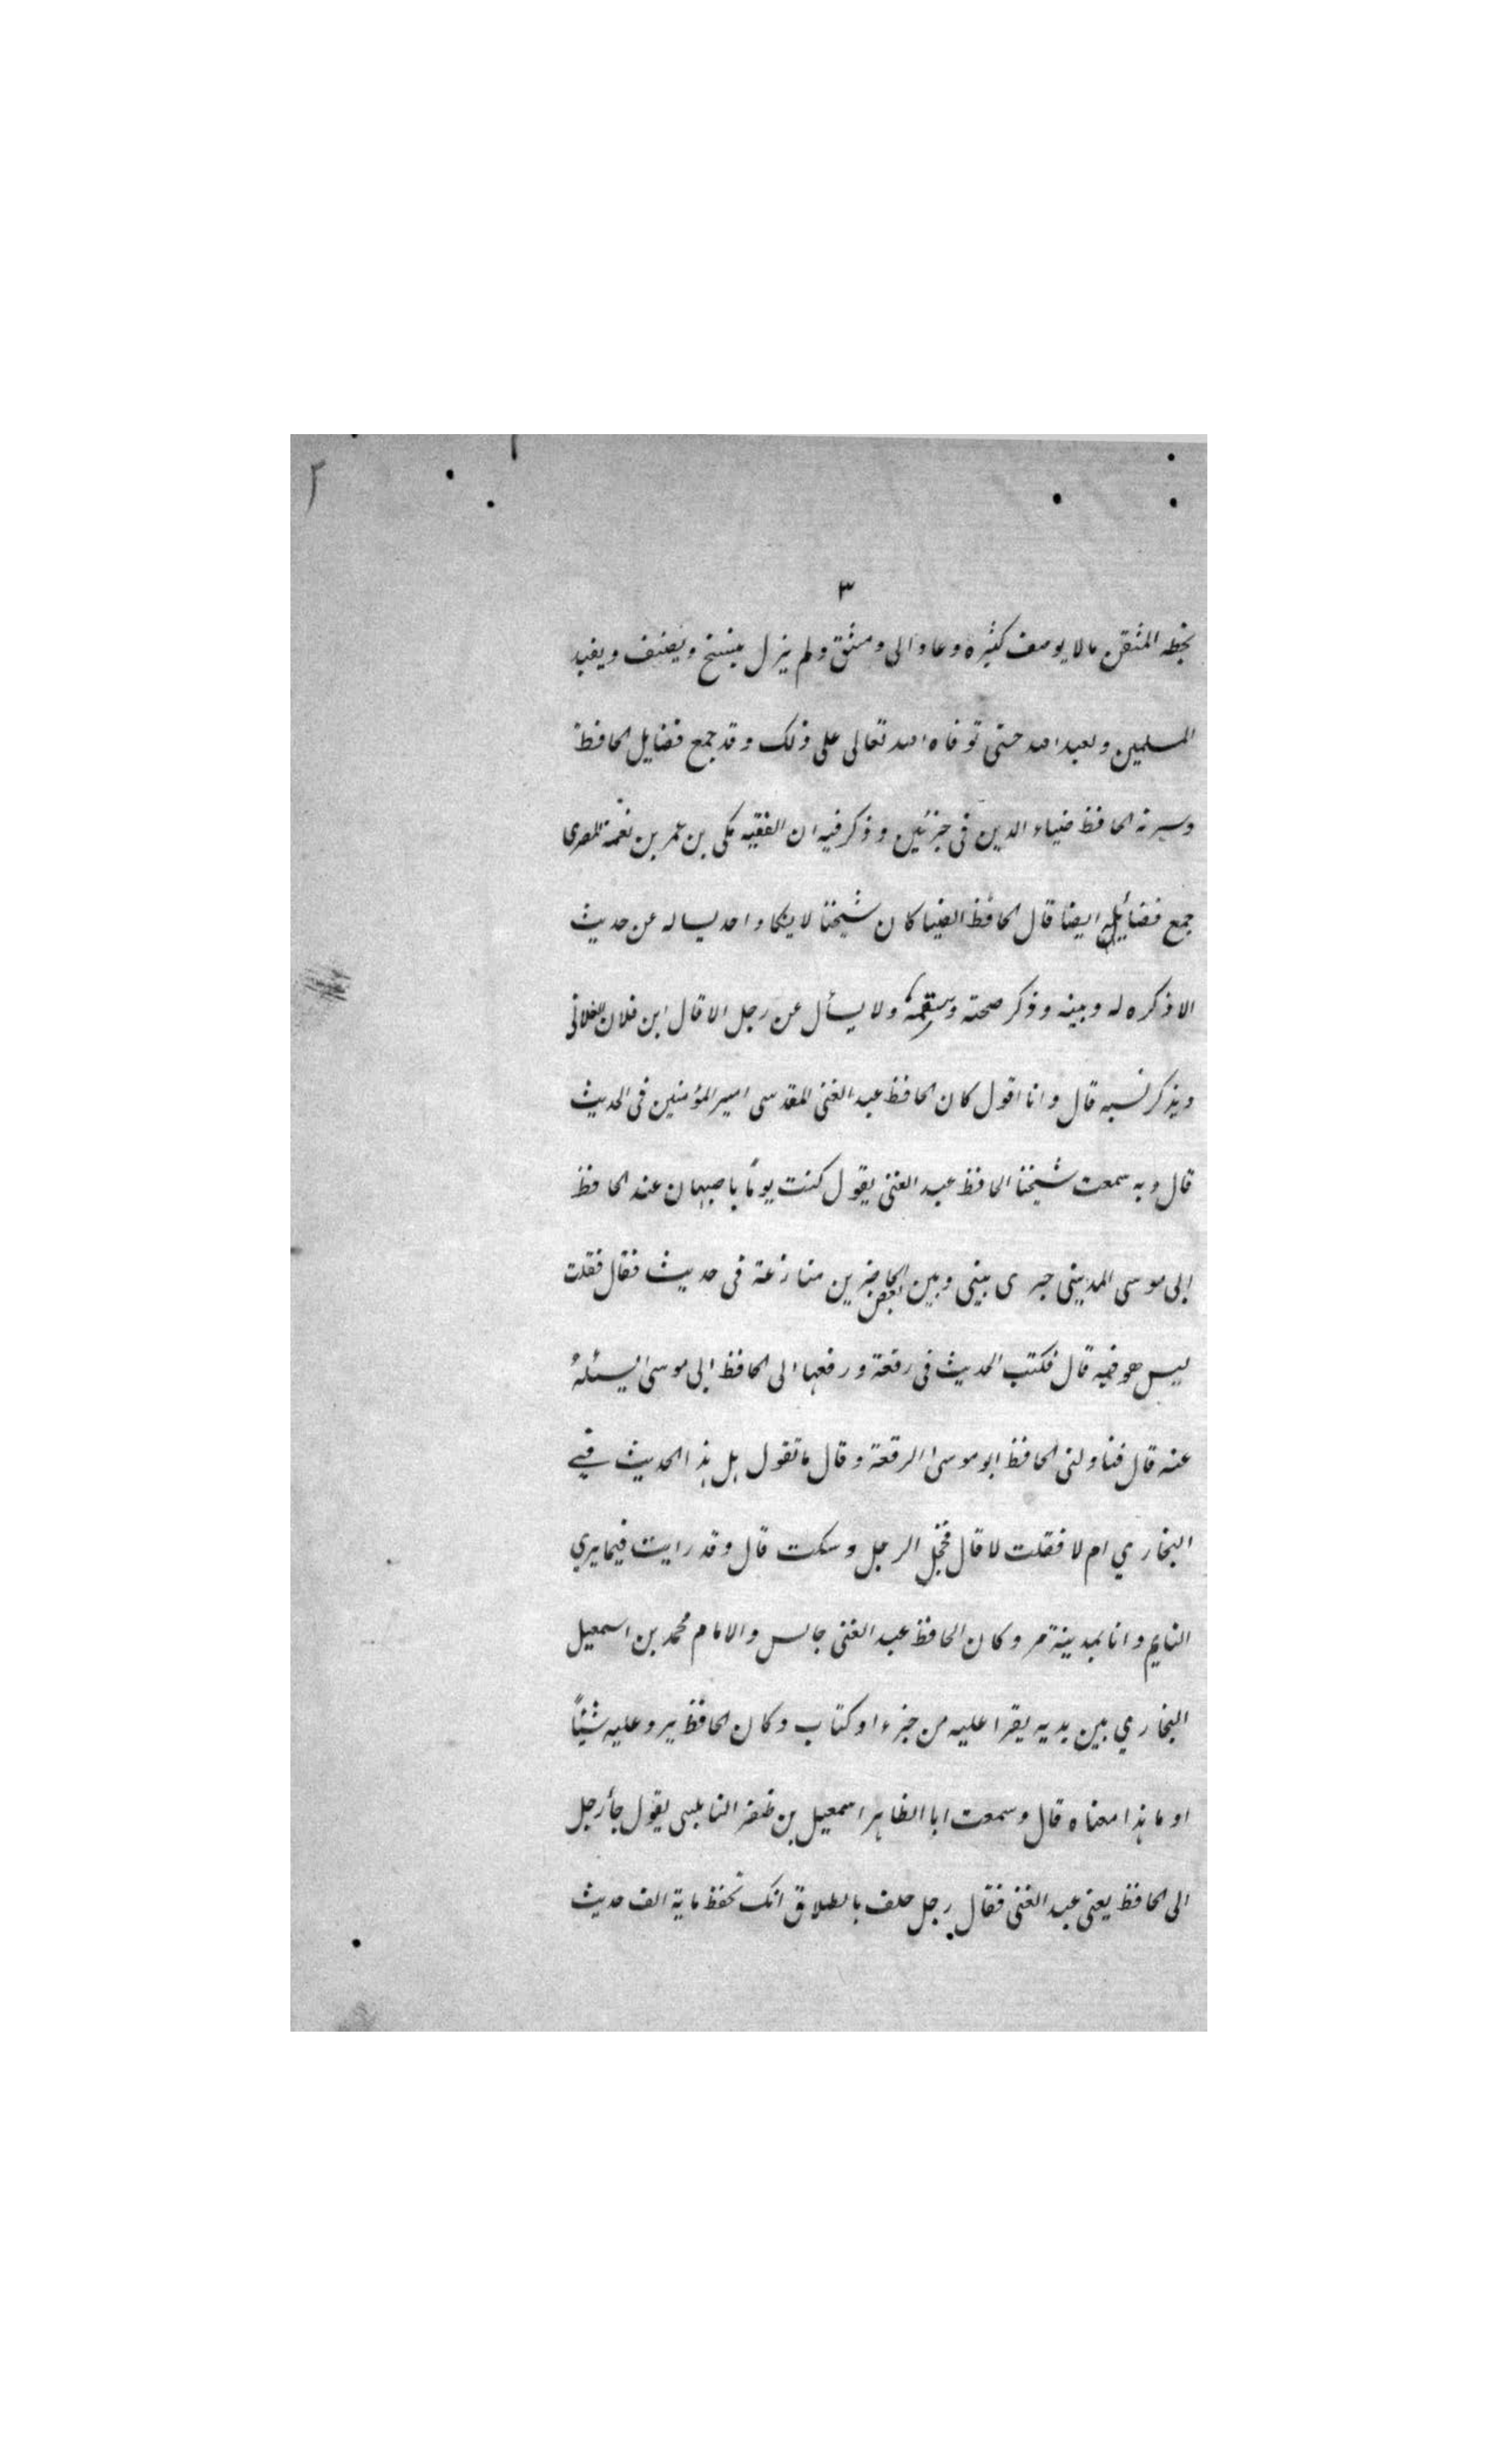 ٢
٣
بخطه المتقن مالا يوصف كثيره وعاد الى دمشق ولم يزل ينسخ ويصنف ويفيد
المسلمين ويعبد الله حتى توفاه الله تعالى على ذلك وقد جمع فضايل الحافظ
وسيرته الحافظ ضياء الدين فى جزئين وذكر فيه ان الفقيه مكى بن عمر بن نعمة المصرى
جمع فضائله ايضا قال الحافظ الضيا كان شيخنا لا يكاد احد يساله عن حديث
الا ذكره له وبينه وذكر صحته وسقمه ولا يسأل عن رجل الا قال ابن فلان الفلانى
ويذكر نسبه قال وانا اقول كان الحافظ عبد الغنى المقدسى امير المؤمنين فى الحديث
قال وبه سمعت شيخنا الحافظ عبد الغنى يقول كنت يوماً باصبهان عند الحافظ
ابى موسى المدينى جرى بينى وبين بعض الحاضرين منازعة فى حديث فقال فقلت
ليس هو فيه قال فكتب الحديث فى رقعة ورفعها الى الحافظ ابى موسى يسئله
عنه قال فناولنى الحافظ ابو موسى الرقعة وقال ما تقول هل هذا الحديث في
البخاري ام لا فقلت لا قال فخجل الرجل وسكت قال وقد رايت فيما يري
النايم وانا بمدينة مرو كان الحافظ عبد الغنى جالس والامام محمد بن اسمعيل
البخاري بين يديه يقرا عليه من جزء او كتاب وكان الحافظ يرد عليه شيئاً
او ما هذا معناه قال وسمعت ابا الطاهر اسمعيل بن ظفر النابلسى يقول جأ رجل
الى الحافظ يعنى عبد الغنى فقال رجل حلف بالطلاق انك تحفظ ماية الف حديث